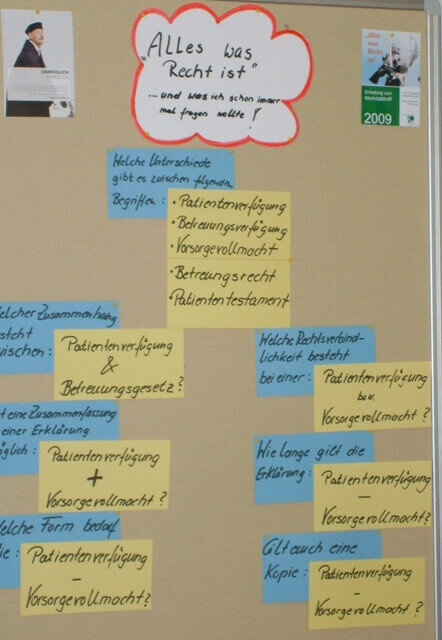 „Alles was
Recht ist"
... und was ich schon immer
mal fragen wollte!
UNMÖGLICH
"Alles
was
Recht
ist"
Einladung zum
Werkstatttreff
2009
Welche Unterschiede
gibt es zwischen folgenden
Begriffen:
• Patientenverfügung
• Betreuungsverfügung
• Vorsorgevollmacht
• Betreungsrecht
• Patiententestament
elcher Zusammenhang
esteht
wischen:
Patientenverfügung
&
Betreuungsgesetz?
t eine Zusammenfassung
einer Erklärung
öglich:
Patientenverfügung
+
Vorsorgevollmacht?
elche Form bedarf
ie:
Patientenverfügung
–
Vorsorgevollmacht?
Welche Rechtsverbind-
lichkeit besteht
bei einer:
Patientenverfügung
bzw.
Vorsorgevollmacht?
Wie lange gilt die
Erklärung:
Patientenverfügung
–
Vorsorgevollmacht?
Gilt auch eine
Kopie:
Patientenverfügung
–
Vorsorgevollmacht?